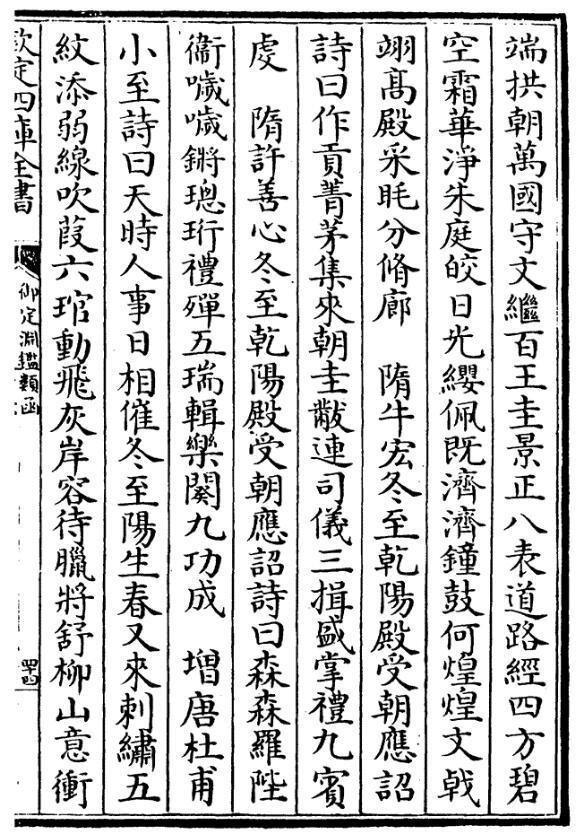 端拱朝萬國守文繼百王圭景正八表道路經四方碧
空霜華淨朱庭皎日光纓佩既濟濟鐘鼓何煌煌文戟
翊髙殿采眊分脩廊　隋牛宏冬至乾陽殿受朝應詔
詩曰作貢菁茅集來朝圭黻連司儀三揖盛掌禮九賓
虔　隋許善心冬至乾陽殿受朝應詔詩曰森森羅陛
衞噦噦鏘璁珩禮殫五瑞輯樂闋九功成　增唐杜甫
小至詩曰天時人事日相催冬至陽生春又來刺繡五
紋添弱線吹葭六琯動飛灰岸容待臘將舒柳山意衝
欽定四庫全書
御定淵鑑類函